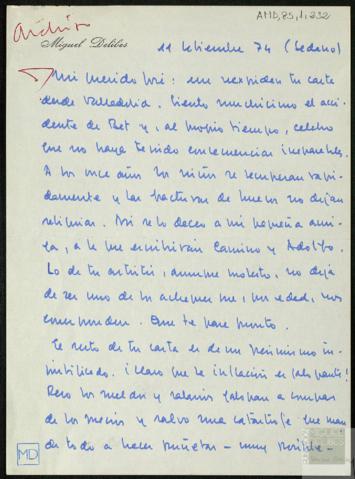 Archivo
AMD,85,1,232
Miguel Delibes
11 setiembre 74 (Sedano)
Mi querido José: me reexpiden tu carta
desde Valladolid. Siento muchísimo el acci-
dente de y, al propio tiempo, celebro
que no haya tenido consecuencias irreparables.
A los once años los niños se recuperan rápi-
damente y las fracturas de huesos no dejan
reliquias. Así se lo deseo a mi pequeña ami-
ga, a la que escribirán Camino y Adolfo.
Lo de tu artritis, aunque molesto, no deja
de ser uno de los achaques que, por edad, nos
corresponden. Que te pase pronto.
El resto de tu carta es de un pesimismo in-
justificado. ¡Claro que la inflación es galopante!
Pero los sueldos y salarios galopan a compás
de los precios y salvo una catástrofe que man-
de todo a hacer puñetas - muy posible -
MD